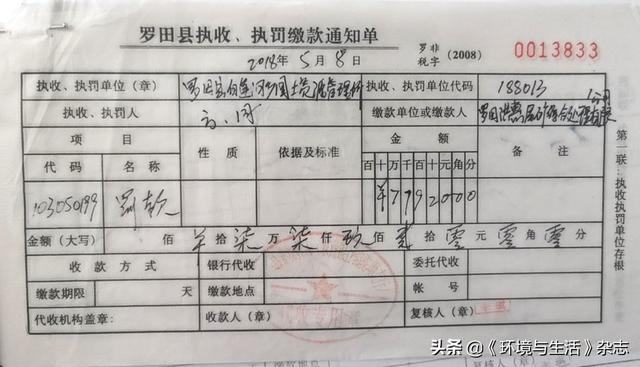 罗田县执收、执罚缴款通知单
2018年5月8日
罗非税字(2008)
0013833
执收、执罚单位(章)
罗田县白莲河国土资源管理所
执收、执罚单位代码
188013
执收、执罚人
缴款单位或缴款人
项目
性质
依据及标准
金额
备注
代码
名称
百十万千百十元角分
103050199
罚款
¥7792000
金额(大写) 佰 羊 拾 柒 万 柒 仟 玖 佰 贰 拾 零 元 零 角 零 分
收款方式
银行代收
委托代收
缴款期限 天
缴款地点
帐号
代收机构盖章:
收款人(章)
复核人(章)
第一联:执收执罚单位存根
代收专用章
头条 @《环境与生活》杂志